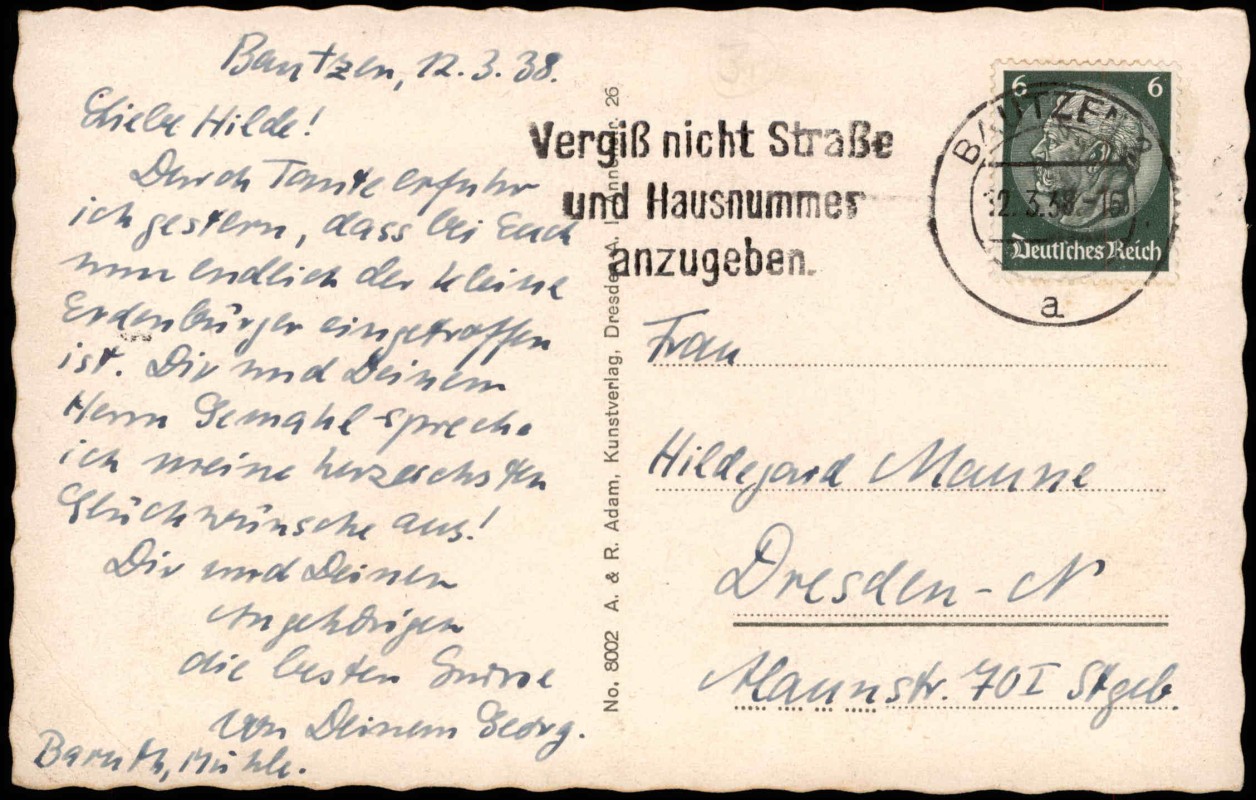 Bautzen, 12.3.38.
Liebe Hilde!
Durch Tante erfuhr
ich gestern, dass bei Euch
nun endlich der kleine
Erdenbürger eingetroffen
ist. Dir und Deinem
Herrn Gemahl spreche
ich meine herzlichsten
Glückwünsche aus!
Dir und Deinen
Angehörigen
die besten Grüsse
von Deinem Georg.
Baruth, Mühle.
No. 8002 A. & R. Adam, Kunstverlag, Dresden A. 26
Vergiß nicht Straße
und Hausnummer
anzugeben.
6 6
Deutsches Reich
BAUTZEN
12.3.38.-16
a
Frau
Hildegard
Dresden-N
Alaunstr. 70 I Stgeb.